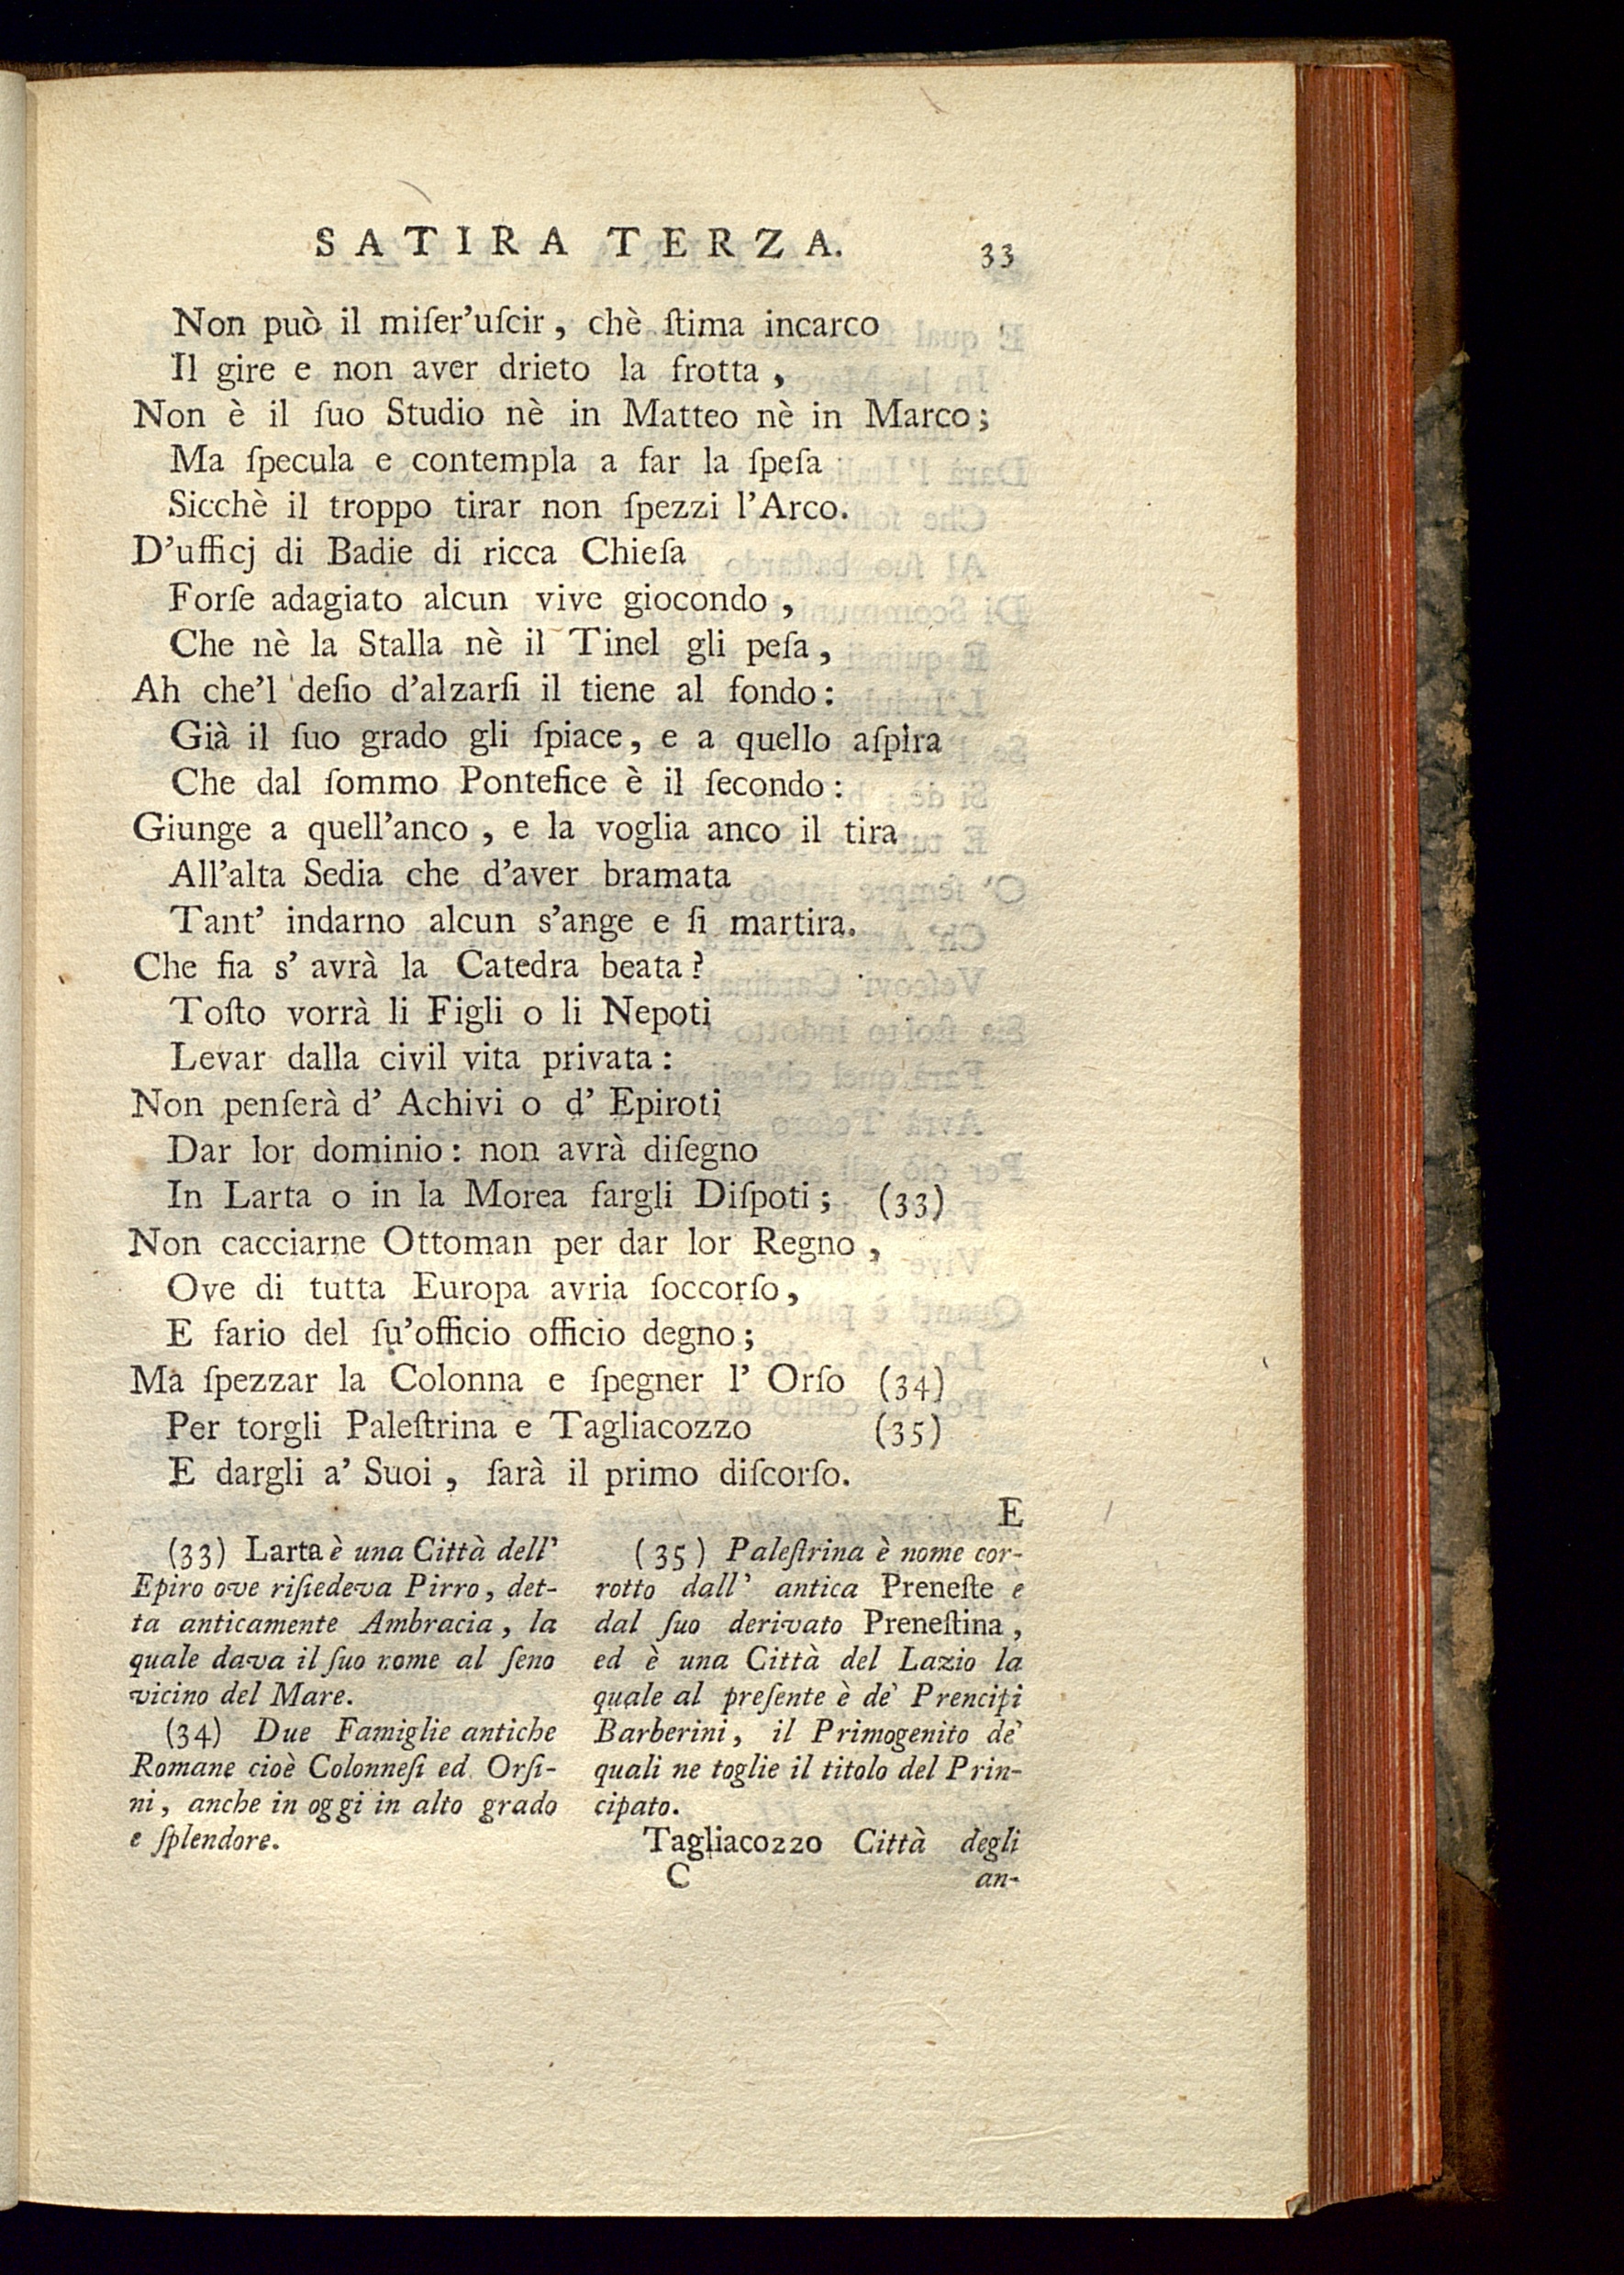 SATIRA TERZA. 33
Non può il miſer'uſcir, chè ſtima incarco
Il gire e non aver drieto la frotta,
Non è il ſuo Studio nè in Matteo nè in Marco;
Ma ſpecula e contempla a far la ſpeſa
Sicchè il troppo tirar non ſpezzi l'Arco.
D'ufficj di Badie di ricca Chieſa
Forſe adagiato alcun vive giocondo,
Che nè la Stalla nè il Tinel gli peſa,
Ah che'l deſio d'alzarſi il tiene al fondo:
Già il ſuo grado gli ſpiace, e a quello aſpira
Che dal ſommo Pontefice è il ſecondo:
Giunge a quell'anco, e la voglia anco il tira
All'alta Sedia che d'aver bramata
Tant' indarno alcun s'ange e ſi martira.
Che fia s' avrà la Catedra beata?
Toſto vorrà li Figli o li Nepoti
Levar dalla civil vita privata:
Non penſerà d' Achivi o d' Epiroti
Dar lor dominio: non avrà diſegno
In Larta o in la Morea fargli Diſpoti; (33)
Non cacciarne Ottoman per dar lor Regno,
Ove di tutta Europa avria ſoccorſo,
E fario del ſu'officio officio degno;
Ma ſpezzar la Colonna e ſpegner l' Orſo (34)
Per torgli Paleſtrina e Tagliacozzo (35)
E dargli a' Suoi, ſarà il primo diſcorſo.
E
(33) Larta è una Città dell'
Epiro ove riſiedeva Pirro, det-
ta anticamente Ambracia, la
quale dava il ſuo nome al ſeno
vicino del Mare.
(34) Due Famiglie antiche
Romane cioè Colonneſi ed Orſi-
ni, anche in oggi in alto grado
e ſplendore.
(35) Paleſtrina è nome cor-
rotto dall' antica Preneſte e
dal ſuo derivato Preneſtina,
ed è una Città del Lazio la
quale al preſente è de' Prencipi
Barberini, il Primogenito de'
quali ne toglie il titolo del Prin-
cipato.
Tagliacozzo Città degli
C an-